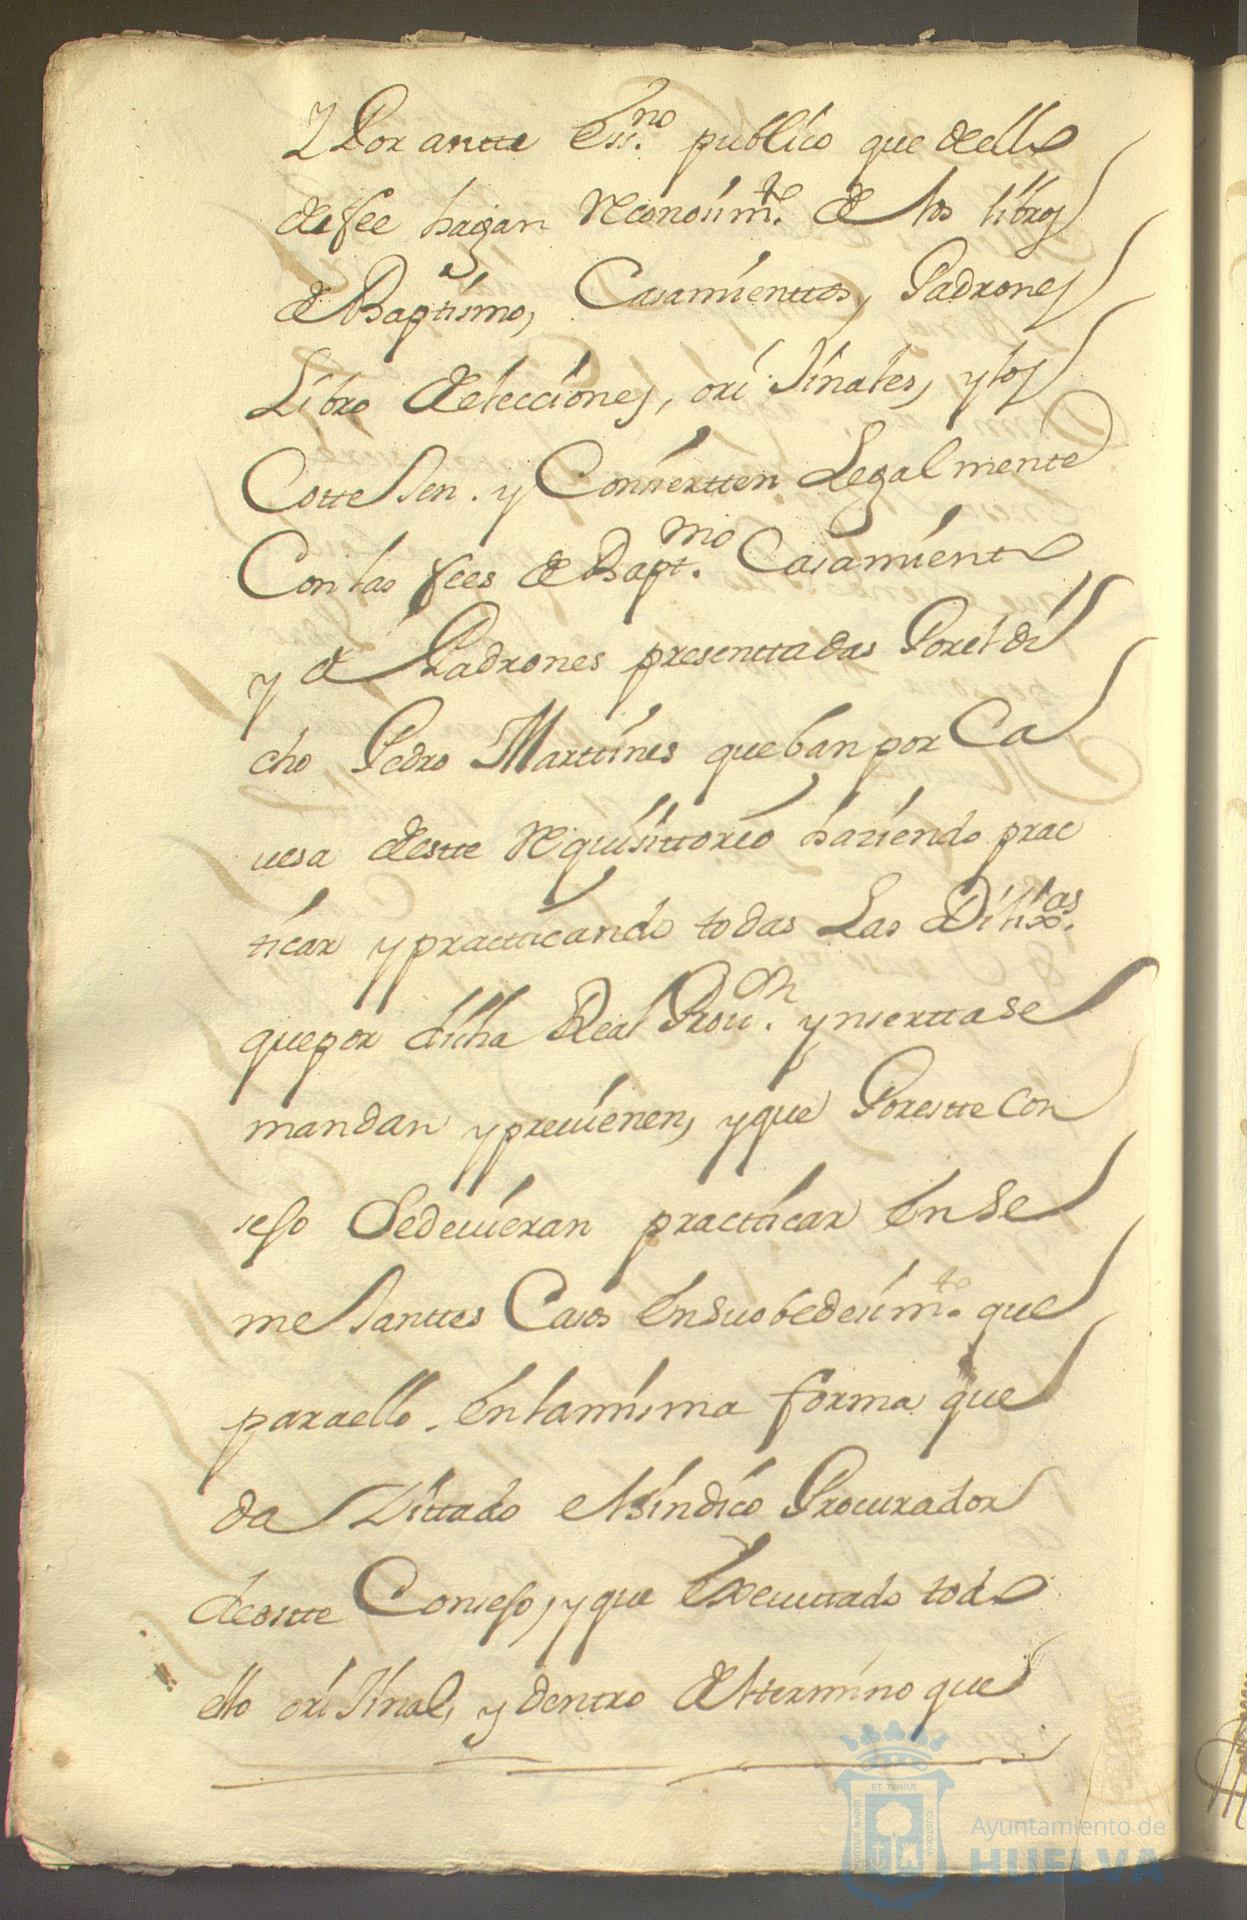 Y Por antte Ess.no publico que de ello
de fee hagan Reconosim.to de los libros
de Baptismo, Casamienttos, Padrones
Libro de elecciones, orijinales, y los
Cottejen. y Consiertten Legalmente
Con las fees de Bapt.mo Casamiento
y de Padrones presenttadas Por el di
cho Pedro Marttines que ban por Ca
vesa de estte Requisittorio haziendo prac
ticar y practticando todas Las Dilix.as
que por dicha Real Prov.on ynserttase
mandan y previenen, y que Por estte Con
sejo Se devieran practticar en Se
mejanttes Casos en su obedesim.to que
para ello. en la misma forma que
da Zittado el sindico Procurador
de estte Consejo, y que Executtado todo
ello orijinal, y dentro del ttermino que
ET TERRÆ
Ayuntamiento de
HUELVA